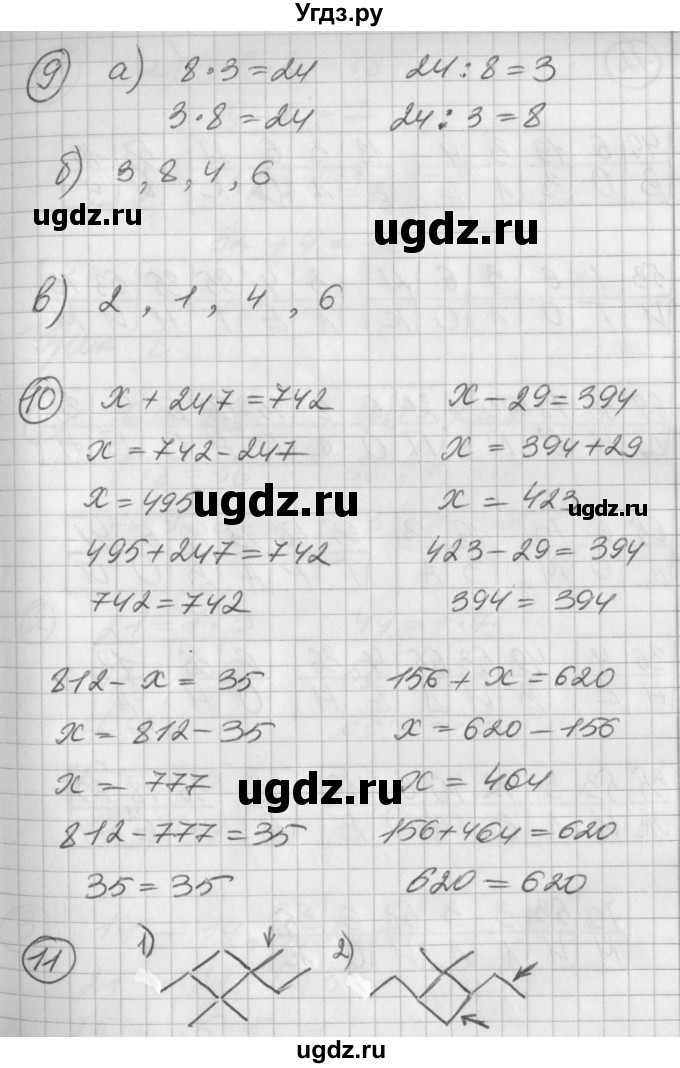 Угдз.ру
9 а) 8·3=24 24:8=3
3·8=24 24:3=8
б) 3, 8, 4, 6
ugdz.ru ugdz.ru
в) 2, 1, 4, 6
10 x+247=742 x-29=394
x=742-247 x=394+29
x=495 x=423
ugdz.ru ugdz.ru
495+247=742 423-29=394
742=742 394=394
812-x=35 156+x=620
x=812-35 x=620-156
x=777 x=464
ugdz.ru
812-777=35 156+464=620
35=35 620=620
11 1) 2)
ugdz.ru